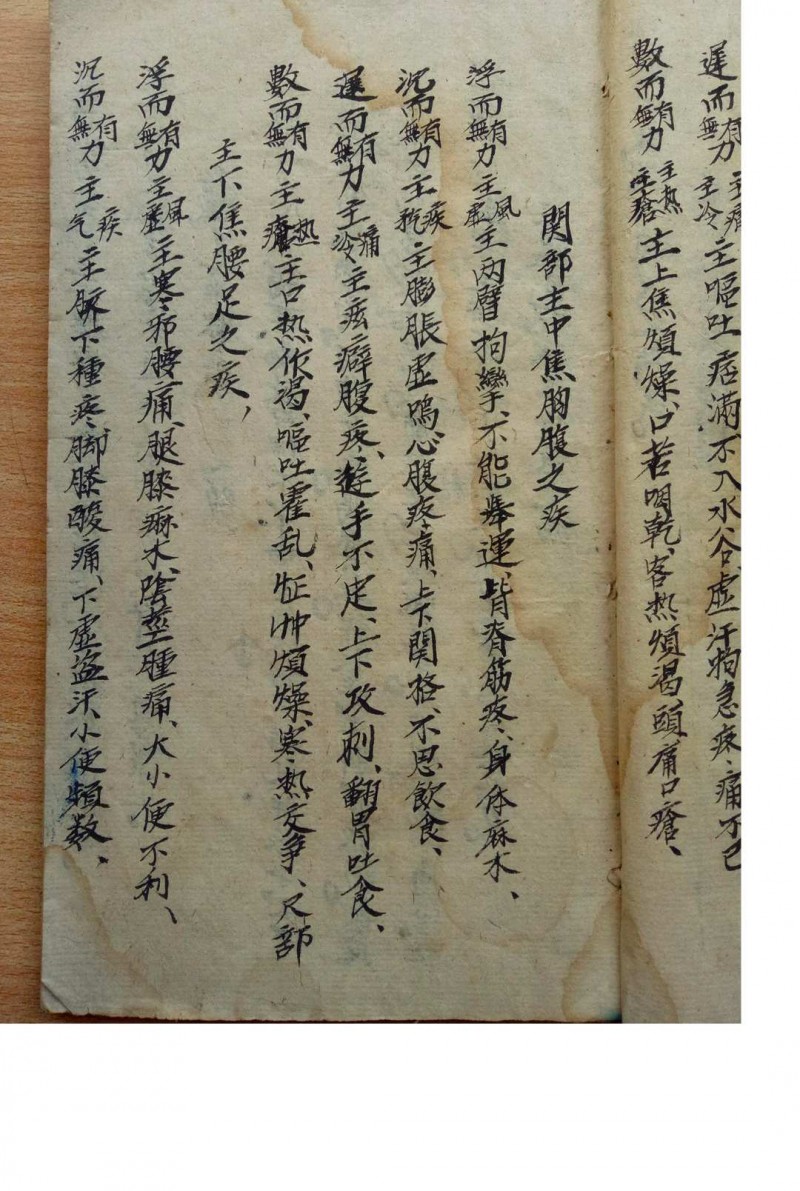 遲而有力無力主痛主冷主嘔吐痞滿、不入水谷、虛汗拘急疼痛不已
數而有力無力主热主瘡主上焦煩燥、口苦咽乾、客热煩渴、頭痛口瘡、
関部主中焦胸腹之疾
浮而有力無力主風主虛主两臂拘攣、不能舉運、背脊筋疼、身体麻木、
沉而有力無力主疾主气主膨脹虛鳴、心腹疼痛、上下関格、不思飲食、
遲而有力無力主痛主冷主痃癖腹疼、手不定、上下攻刺、翻胃吐食、
數而有力無力主热主瘡主口热作渴、嘔吐霍乱、怔忡煩燥、寒热交争、尺部
主下焦腰足之疾，
浮而有力無力主風主虛主寒邪腰痛、腿膝麻木、陰莖腫痛、大小便不利、
沉而有力無力主疾主气主脉下種疼、脚膝酸痛、下虛盗汗、小便頻数、